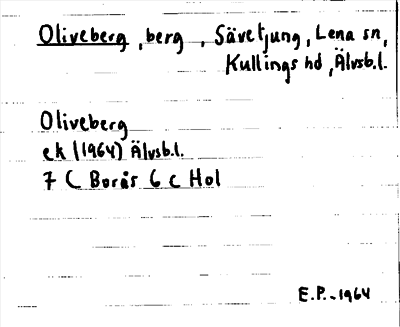 Oliveberg, berg, Sävetjung, Lena sn,
Kullings hd, Älvsb.l.
Oliveberg
ek (1964) Älvsb.l.
7 C Borås 6 c Hol
E.P.-1964